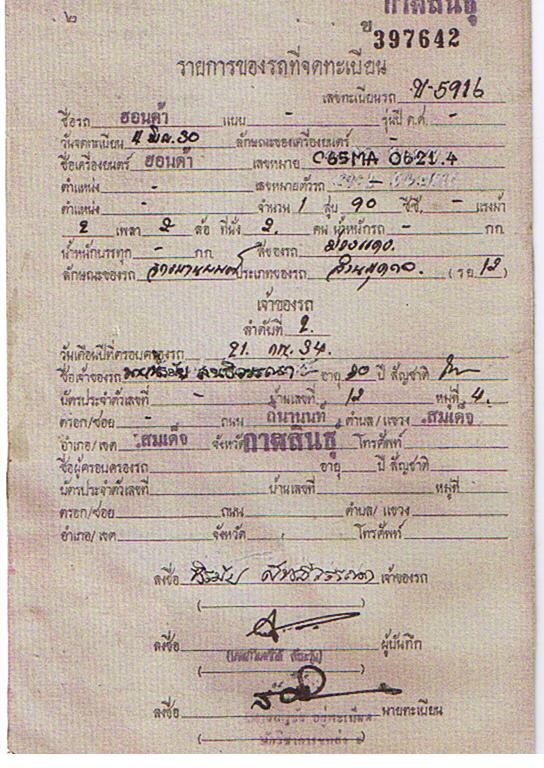 ๒
กาฬสินธุ์
ข 397642
รายการของรถที่จดทะเบียน
เลขทะเบียนรถ ข-5916
ชื่อรถ ฮอนด้า แบบ - รุ่นปี ค.ศ. -
วันจดทะเบียน 4 มิย. 30 ลักษณะของเครื่องยนตร์ -
ชื่อเครื่องยนตร์ ฮอนด้า เลขหมาย C65MA 0621.4
ตำแหน่ง - เลขหมายตัวรถ
ตำแหน่ง - จำนวน 1 สูบ 90 ซีซี. - แรงม้า
2 เพลา 2 ล้อ ที่นั่ง 2. คน น้ำหนักรถ - กก
น้ำหนักบรรทุก - กก สีของรถ ม่วงแดง.
ลักษณะของรถ จักรยานยนต์ ประเภทของรถ ส่วนบุคคล. (รย. 12)
เจ้าของรถ
ลำดับที่ 2.
วันเดือนปีที่ครอบครองรถ 21. กพ. 34.
ชื่อเจ้าของรถ อายุ 20 ปี สัญชาติ ไทย
บัตรประจำตัวเลขที่ - บ้านเลขที่ 12 หมู่ที่ 4.
ตรอก/ซอย - ถนน ถีนานนท์ ตำบล/แขวง สมเด็จ
อำเภอ/เขต สมเด็จ จังหวัด กาฬสินธุ์ โทรศัพท์
ชื่อผู้ครอบครองรถ อายุ ปี สัญชาติ
บัตรประจำตัวเลขที่ บ้านเลขที่ หมู่ที่
ตรอก/ซอย ถนน ตำบล/แขวง
อำเภอ/เขต จังหวัด โทรศัพท์
ลงชื่อ เจ้าของรถ
( )
ลงชื่อ ผู้บันทึก
( )
ลงชื่อ นายทะเบียน
( )